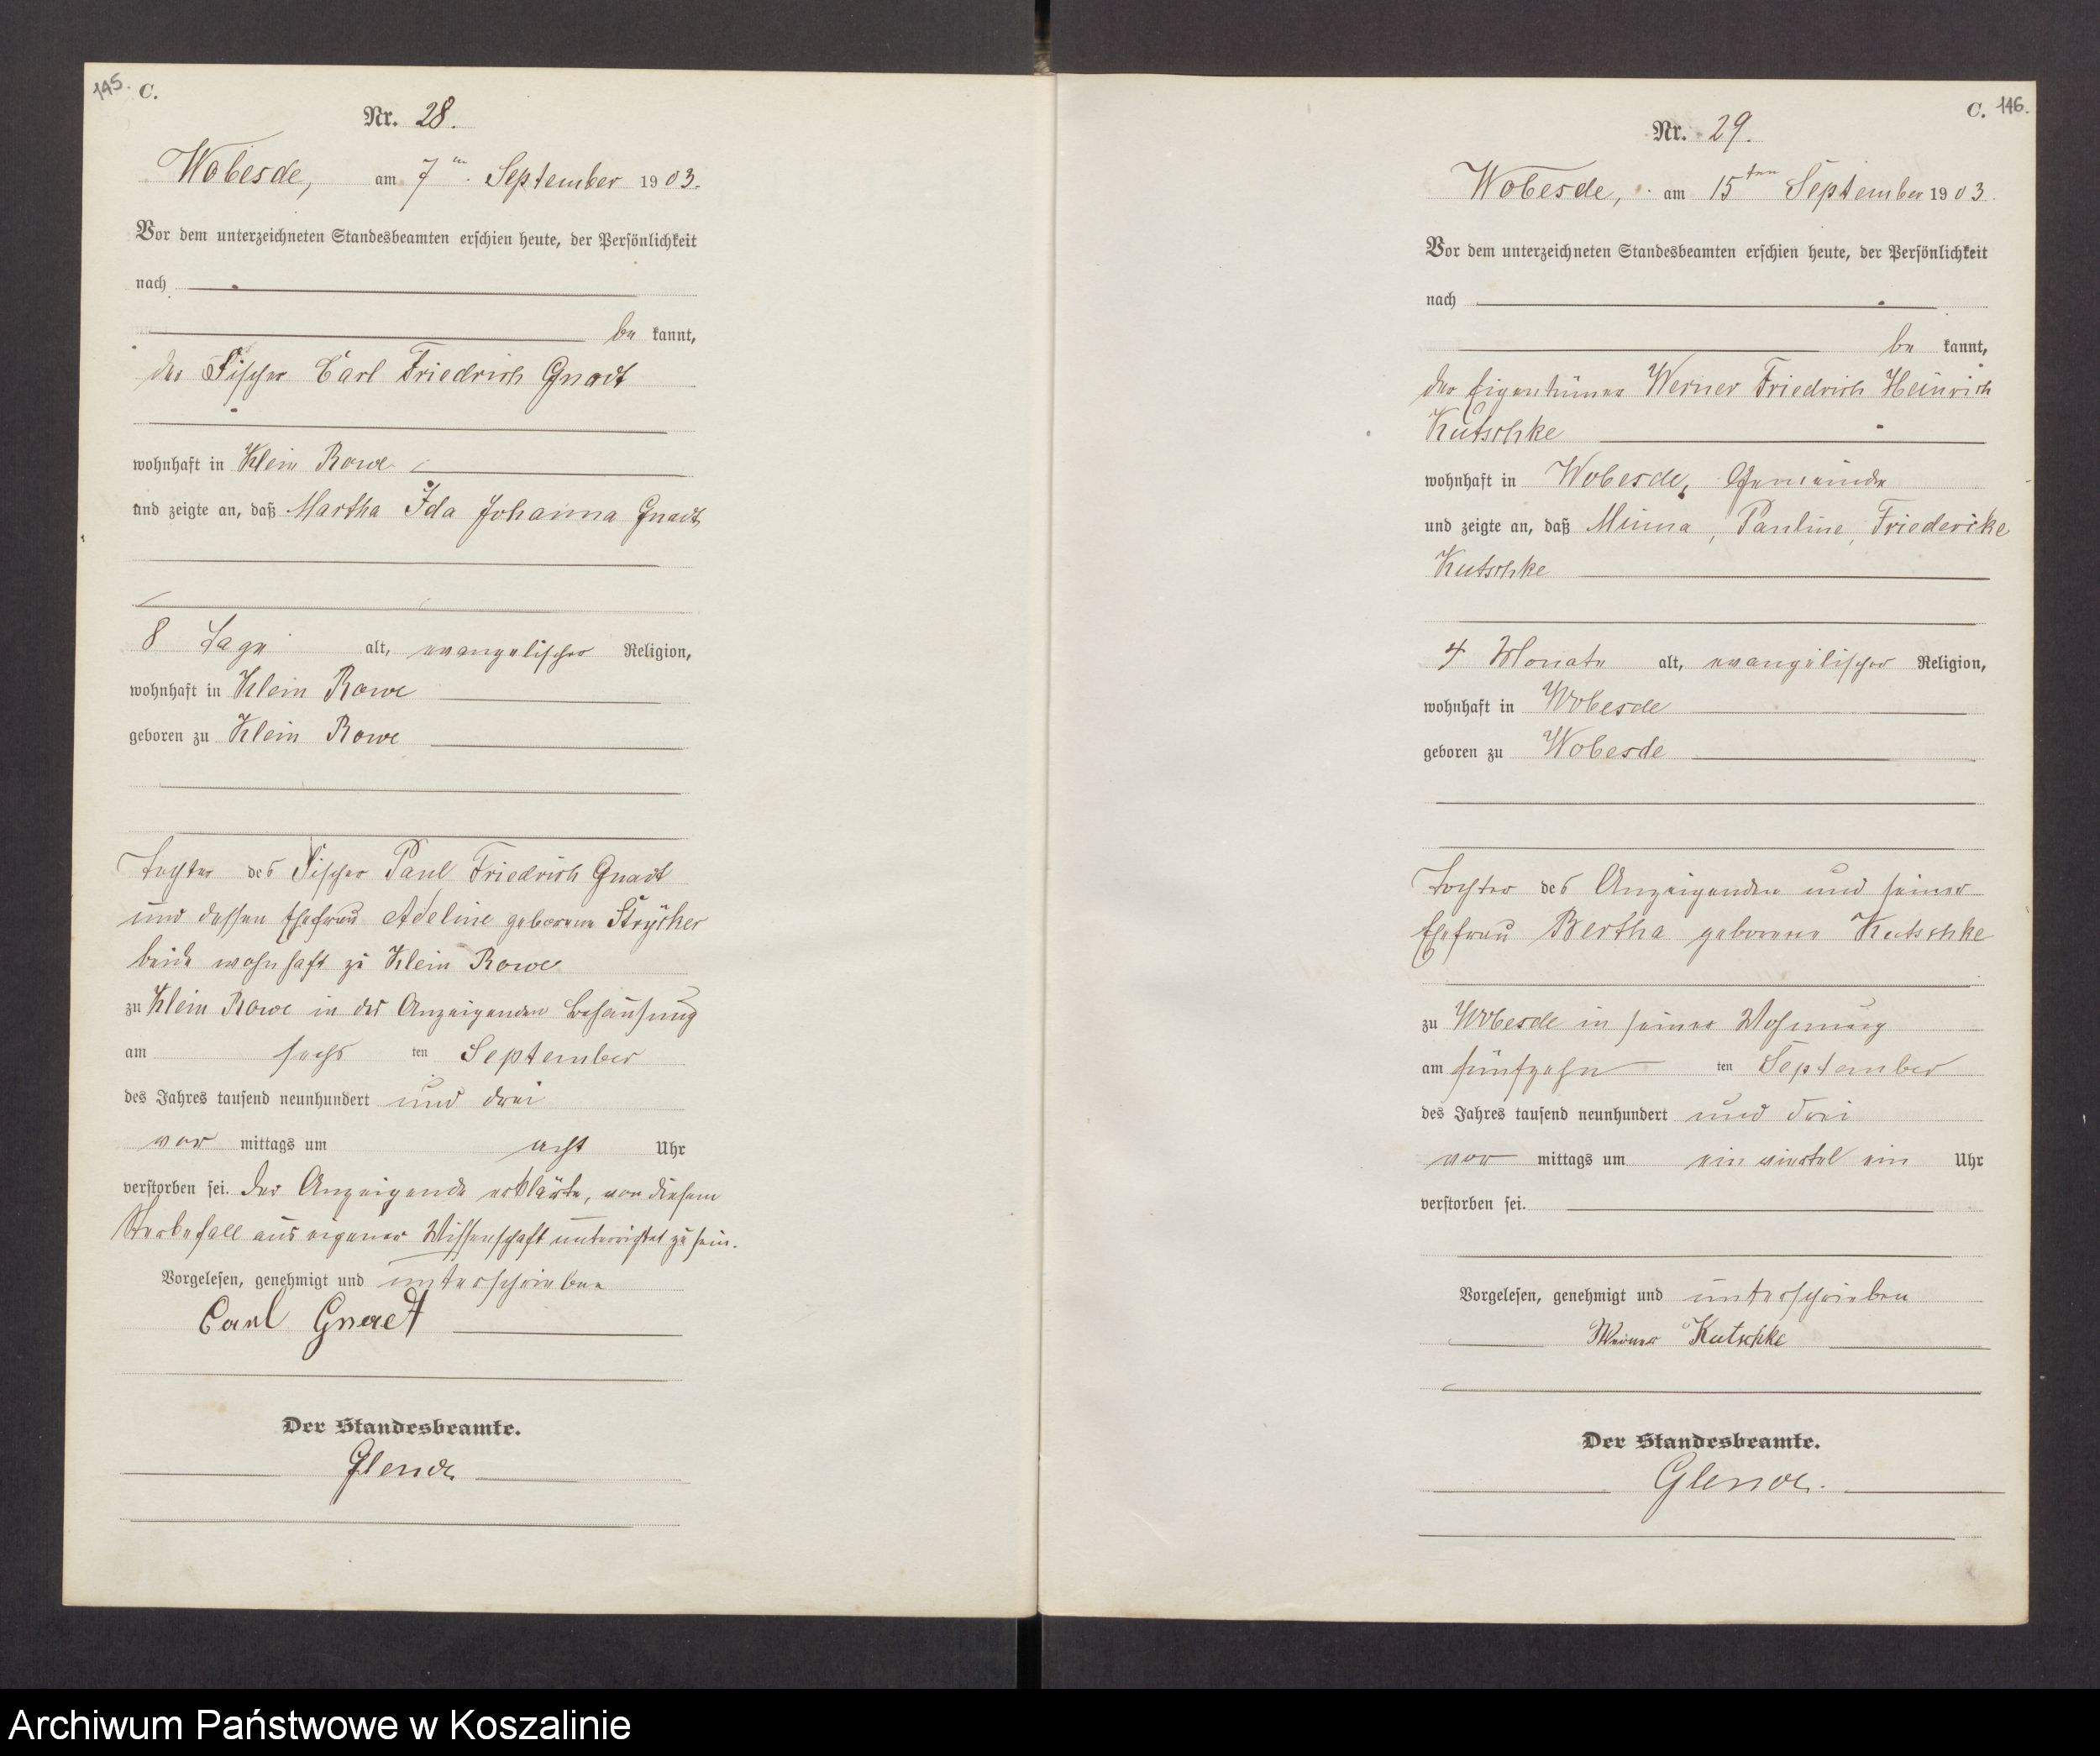 145. C.
Nr. 28.
Wobesde, am 7ten September 1903.
Vor dem unterzeichneten Standesbeamten erschien heute, der Persönlichkeit
nach
be kannt,
der Fischer Carl Friedrich Gnadt
wohnhaft in Klein Rowe
und zeigte an, daß Martha Ida Johanna Gnadt
8 Tage alt, evangelischer Religion,
wohnhaft in Klein Rowe
geboren zu Klein Rowe
Tochter des Fischer Paul Friedrich Gnadt
und dessen Ehefrau Adeline geborene
beide wohnhaft zu Klein Rowe
zu Klein Rowe in des Anzeigenden Behausung
am sechs ten September
des Jahres tausend neunhundert und drei
vor mittags um acht Uhr
verstorben sei. Der Anzeigende erklärte, von diesem
Sterbefall aus eigener Wissenschaft unterrichtet zu sein.
Vorgelesen, genehmigt und unterschrieben
Carl Gnadt
Der Standesbeamte.
C. 146.
Nr. 29.
Wobesde, am 15ten September 1903.
Vor dem unterzeichneten Standesbeamten erschien heute, der Persönlichkeit
nach
be kannt,
der Eigentümer Werner Friedrich Heinrich
Kutschke
wohnhaft in Wobesde, Gemeinde
und zeigte an, daß Minna, Pauline, Friedericke
Kutschke
4 Monate alt, evangelischer Religion,
wohnhaft in Wobesde
geboren zu Wobesde
Tochter des Anzeigenden und seiner
Ehefrau Bertha geborene Kutschke
zu Wobesde in seiner Wohnung
am fünfzehn ten September
des Jahres tausend neunhundert und drei
vor mittags um ein viertel ein Uhr
verstorben sei.
Vorgelesen, genehmigt und unterschrieben
Werner Kutschke
Der Standesbeamte.
Archiwum Państwowe w Koszalinie